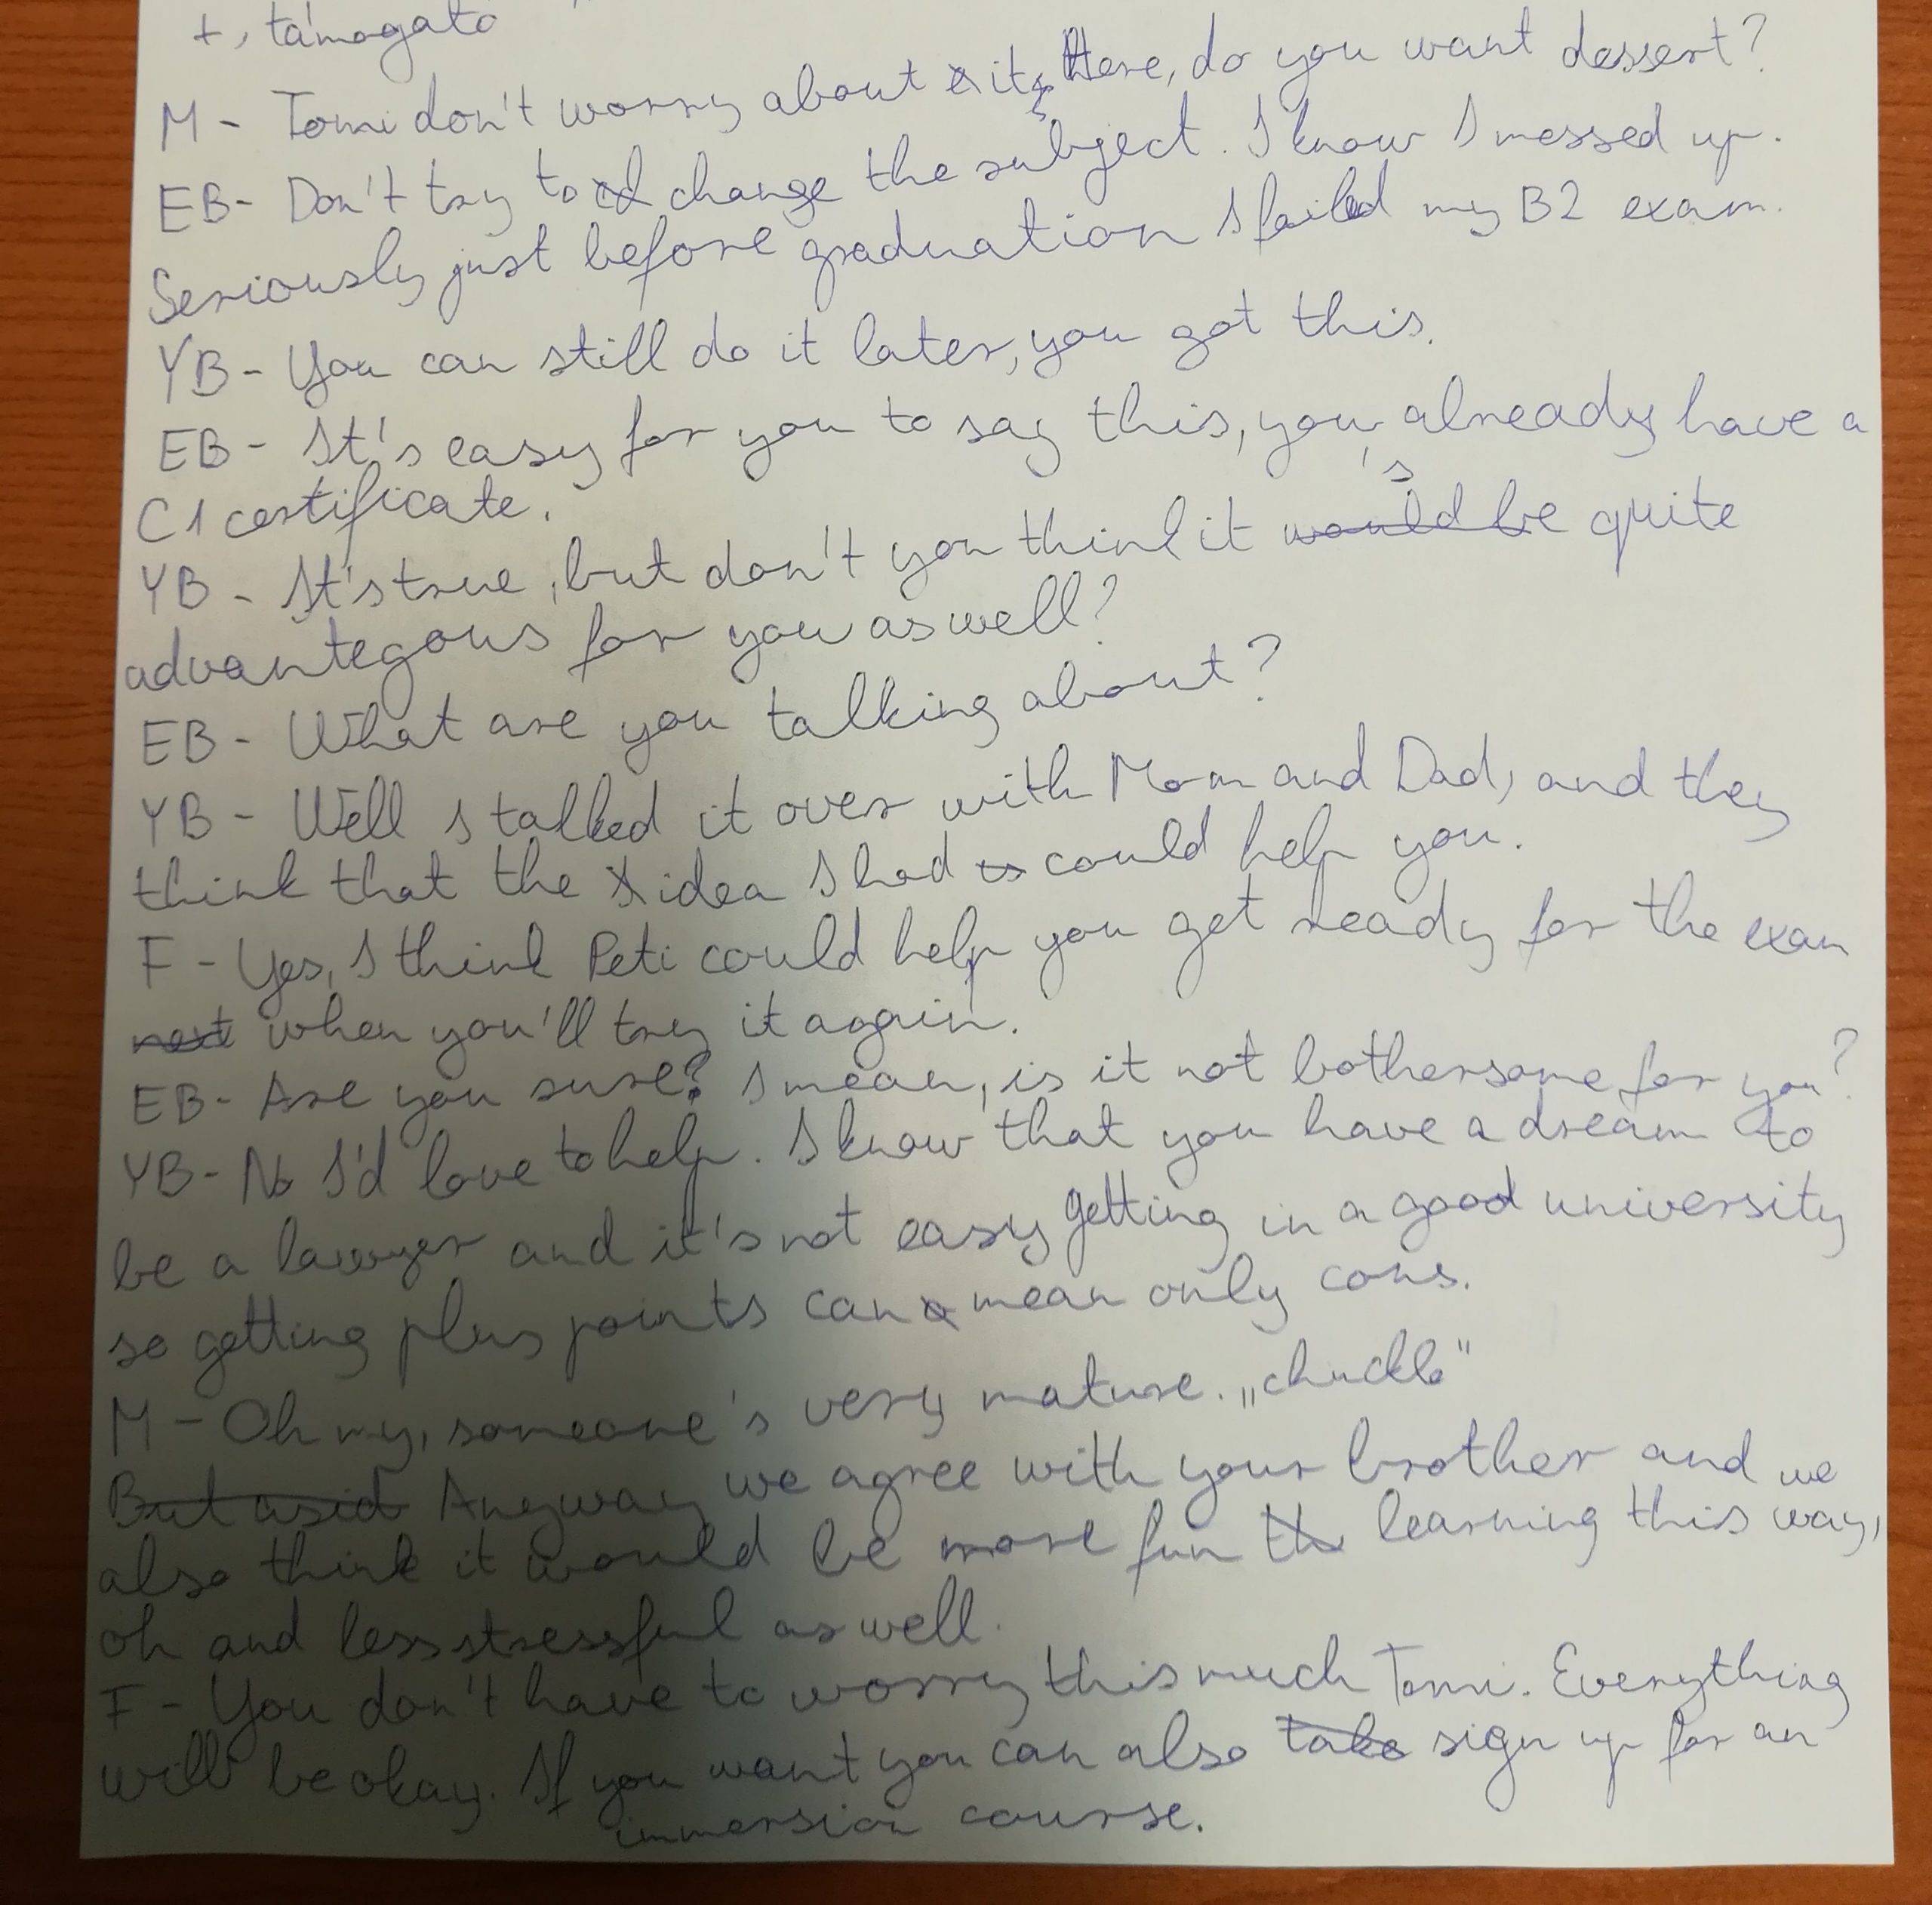 +, támogató
M - Tomi don't worry about it, Here, do you want dessert?
EB - Don't try to change the subject. I know I messed up.
Seriously just before graduation I failed my B2 exam.
YB - You can still do it later, you got this.
EB - It's easy for you to say this, you already have a
C1 certificate.
YB - It's true, but don't you think it's quite
advantegous for you as well?
EB - What are you talking about?
YB - Well I talked it over with Mom and Dad, and they
think that the idea I had could help you.
F - Yes, I think Peti could help you get ready for the exam
when you'll try it again.
EB - Are you sure? I mean, is it not bothersome for you?
YB - No I'd love to help. I know that you have a dream to
be a lawyer and it's not easy getting in a good university
so getting plus points can mean only cons.
M - Oh my, someone's very mature. „chuckle"
But asid Anyway we agree with your brother and we
also think it would be more fun learning this way,
oh and less stressful as well.
F - You don't have to worry this much Tomi. Everything
will be okay. If you want you can also take sign up for an
immersion course.